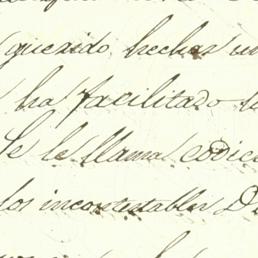 querido, hechas un
ha facilitado la
Se le llama codic
los incontestables D